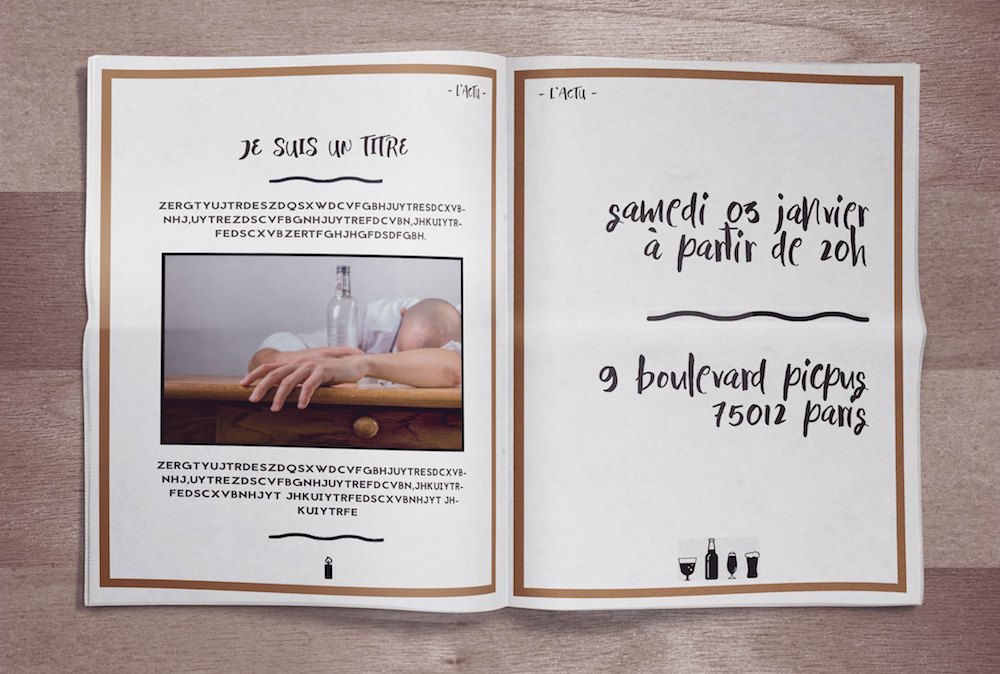 - L'ACTU -
JE SUIS UN TITRE
ZERGTYUJTRDESZDQSXWDCVFGBHJUYTRESDCXVB-
NHJ,UYTREZDSCVFBGNHJUYTREFDCVBN,JHKUIYTR-
FEDSCXVBZERTFGHJHGFDSDFGBH.
ZERGTYUJTRDESZDQSXWDCVFGBHJUYTRESDCXVB-
NHJ,UYTREZDSCVFBGNHJUYTREFDCVBN,JHKUIYTR-
FEDSCXVBNHJYT JHKUIYTRFEDSCXVBNHJYT JH-
KUIYTRFE
- L'ACTU -
samedi 03 janvier
à partir de 20h
9 boulevard picpus
75012 paris